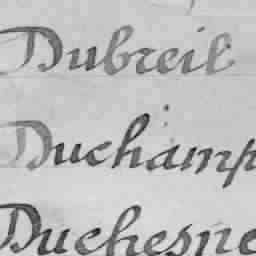 Dubreil
Duchamp
Duchesne